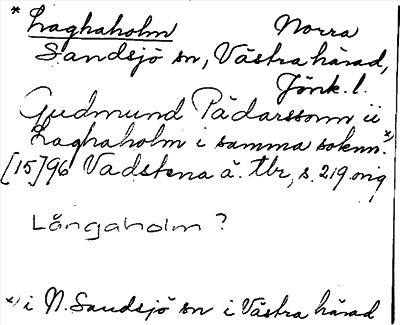 * Laghaholm Norra
Sandsjö sn, Västra härad,
Jönk. l.
Gudmund Pädarssonn ii
Laghaholm i samma soknn. x)
[15]96 Vadstena ä. tbr, s. 219 orig
Långaholm ?
x) i N. Sandsjö sn i Västra härad